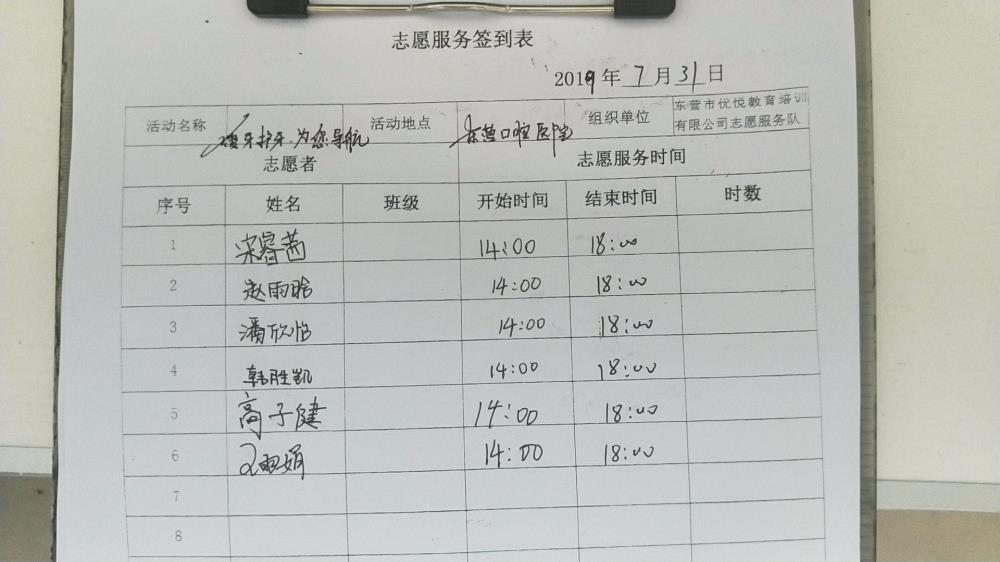 志愿服务签到表
2019年7月31日
活动名称 爱牙护牙.为您导航 活动地点 东营口腔医院 组织单位 东营市优悦教育培训有限公司志愿服务队
志愿者 志愿服务时间
序号 姓名 班级 开始时间 结束时间 时数
1 宋睿茜 14:00 18:00
2 赵雨晗 14:00 18:00
3 潘欣怡 14:00 18:00
4 韩胜凯 14:00 18:00
5 高子健 14:00 18:00
6 14:00 18:00
7
8